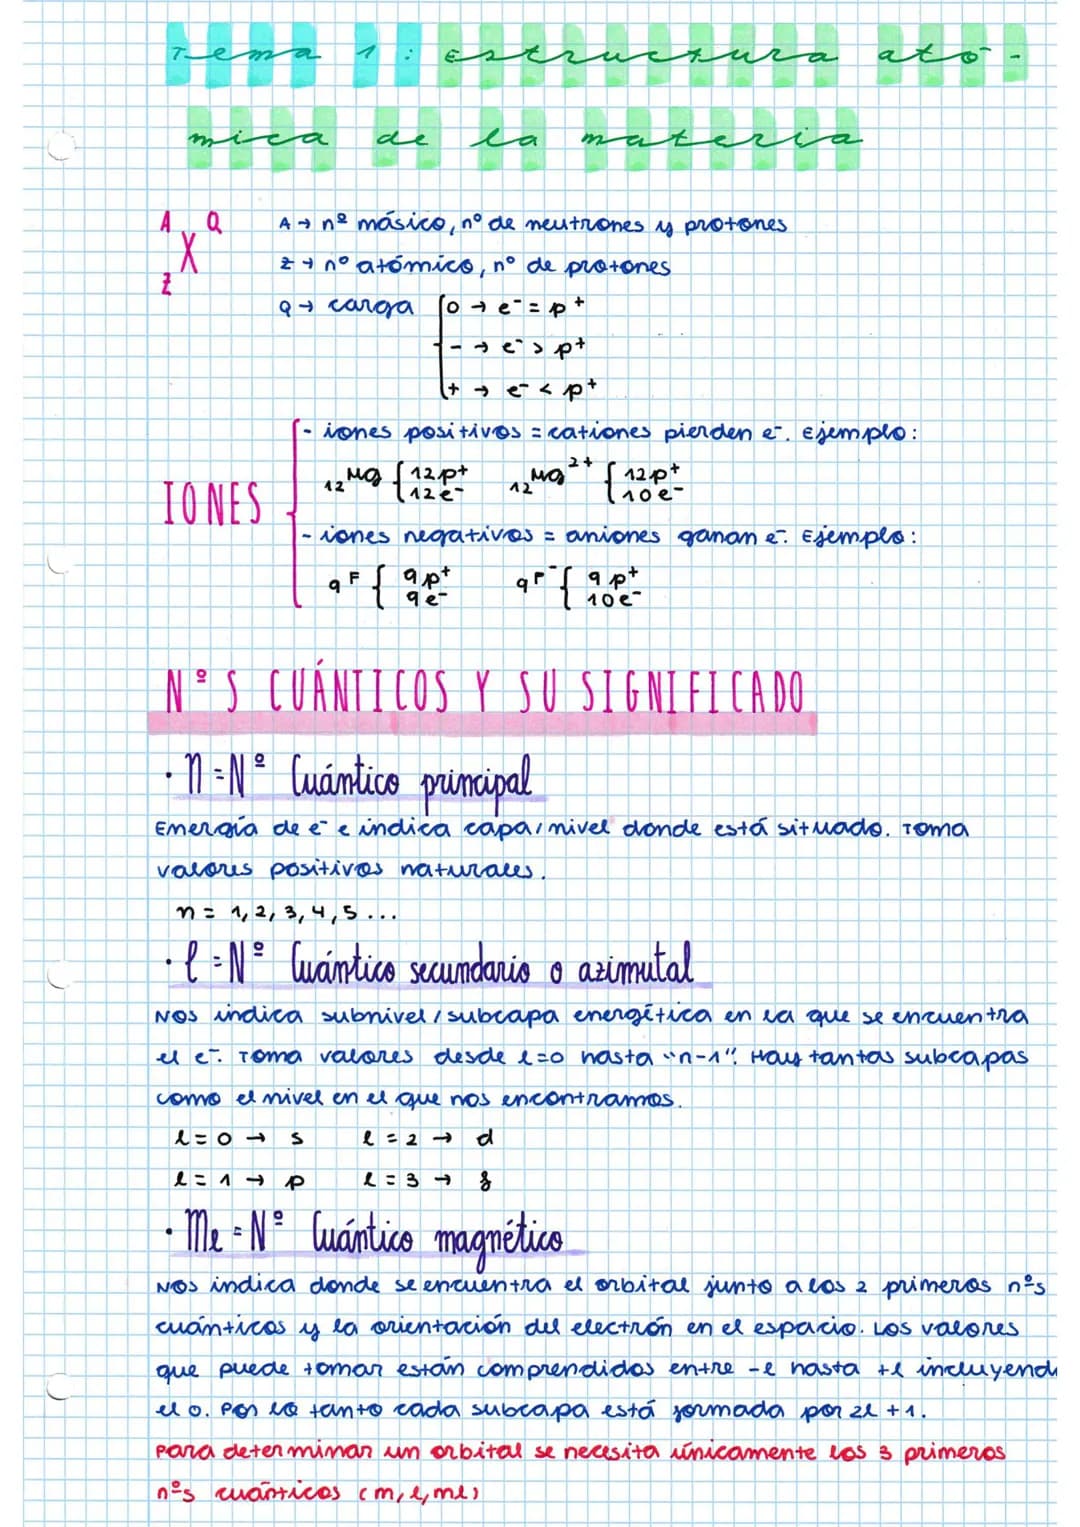 Tema 1: Estructura ató-
mica de la materia
A Q
X
Z
A → nº másico, nº de neutrones y protones
Z → nº atómico, nº de protones
Q → carga { 0 → e⁻ = p⁺
- → e⁻ > p⁺
+ → e⁻ < p⁺
IONES
- iones positivos = cationes pierden e⁻. Ejemplo:
₁₂Mg { 12p⁺ 12e⁻ ₁₂Mg²⁺ { 12p⁺ 10e⁻
- iones negativos = aniones ganan e⁻. Ejemplo:
₉F { 9p⁺ 9e⁻ ₉F⁻ { 9p⁺ 10e⁻
NºS CUÁNTICOS Y SU SIGNIFICADO
· n = Nº Cuántico principal
Energía de e⁻ e indica capa/nivel donde está situado. Toma
valores positivos naturales.
n = 1, 2, 3, 4, 5...
· l = Nº Cuántico secundario o azimutal
Nos indica subnivel/subcapa energética en la que se encuentra
el e⁻. Toma valores desde l=0 hasta "n-1". Hay tantas subcapas
como el nivel en el que nos encontramos.
l = 0 → s l = 2 → d
l = 1 → p l = 3 → f
· Ml = Nº Cuántico magnético
Nos indica donde se encuentra el orbital junto a los 2 primeros nºs
cuánticos y la orientación del electrón en el espacio. Los valores
que puede tomar están comprendidos entre -l hasta +l incluyend
el 0. Por lo tanto cada subcapa está formada por 2l +1.
Para determinar un orbital se necesita únicamente los 3 primeros
nºs cuánticos (m, l, ml)